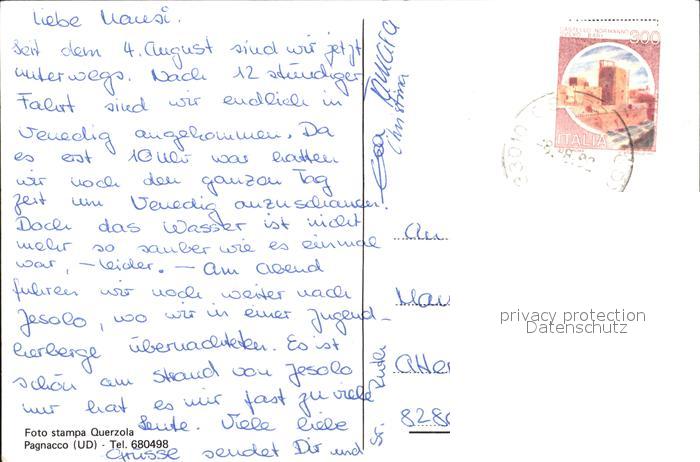 Liebe Mausi.
Seit dem 4. August sind wir jetzt
unterwegs. Nach 12 stündiger
Fahrt sind wir endlich in
Venedig angekommen. Da
es erst 10 Uhr war hatten
wir noch den ganzen Tag
Zeit um Venedig anzuschauen.
Doch das Wasser ist nicht
mehr so sauber wie es einmal
war, – leider. – Am Abend
fuhren wir noch weiter nach
Jesolo, wo wir in einer Jugend-
herberge übernachteten. Es ist
schön am Strand von Jesolo
nur hat es mir fast zu viele
Leute. Viele liebe
Grüsse sendet Dir und
Christina
CASTELLO NORMANNO
300
ITALIA
An
8280
Foto stampa Querzola
Pagnacco (UD) - Tel. 680498
privacy protection
Datenschutz